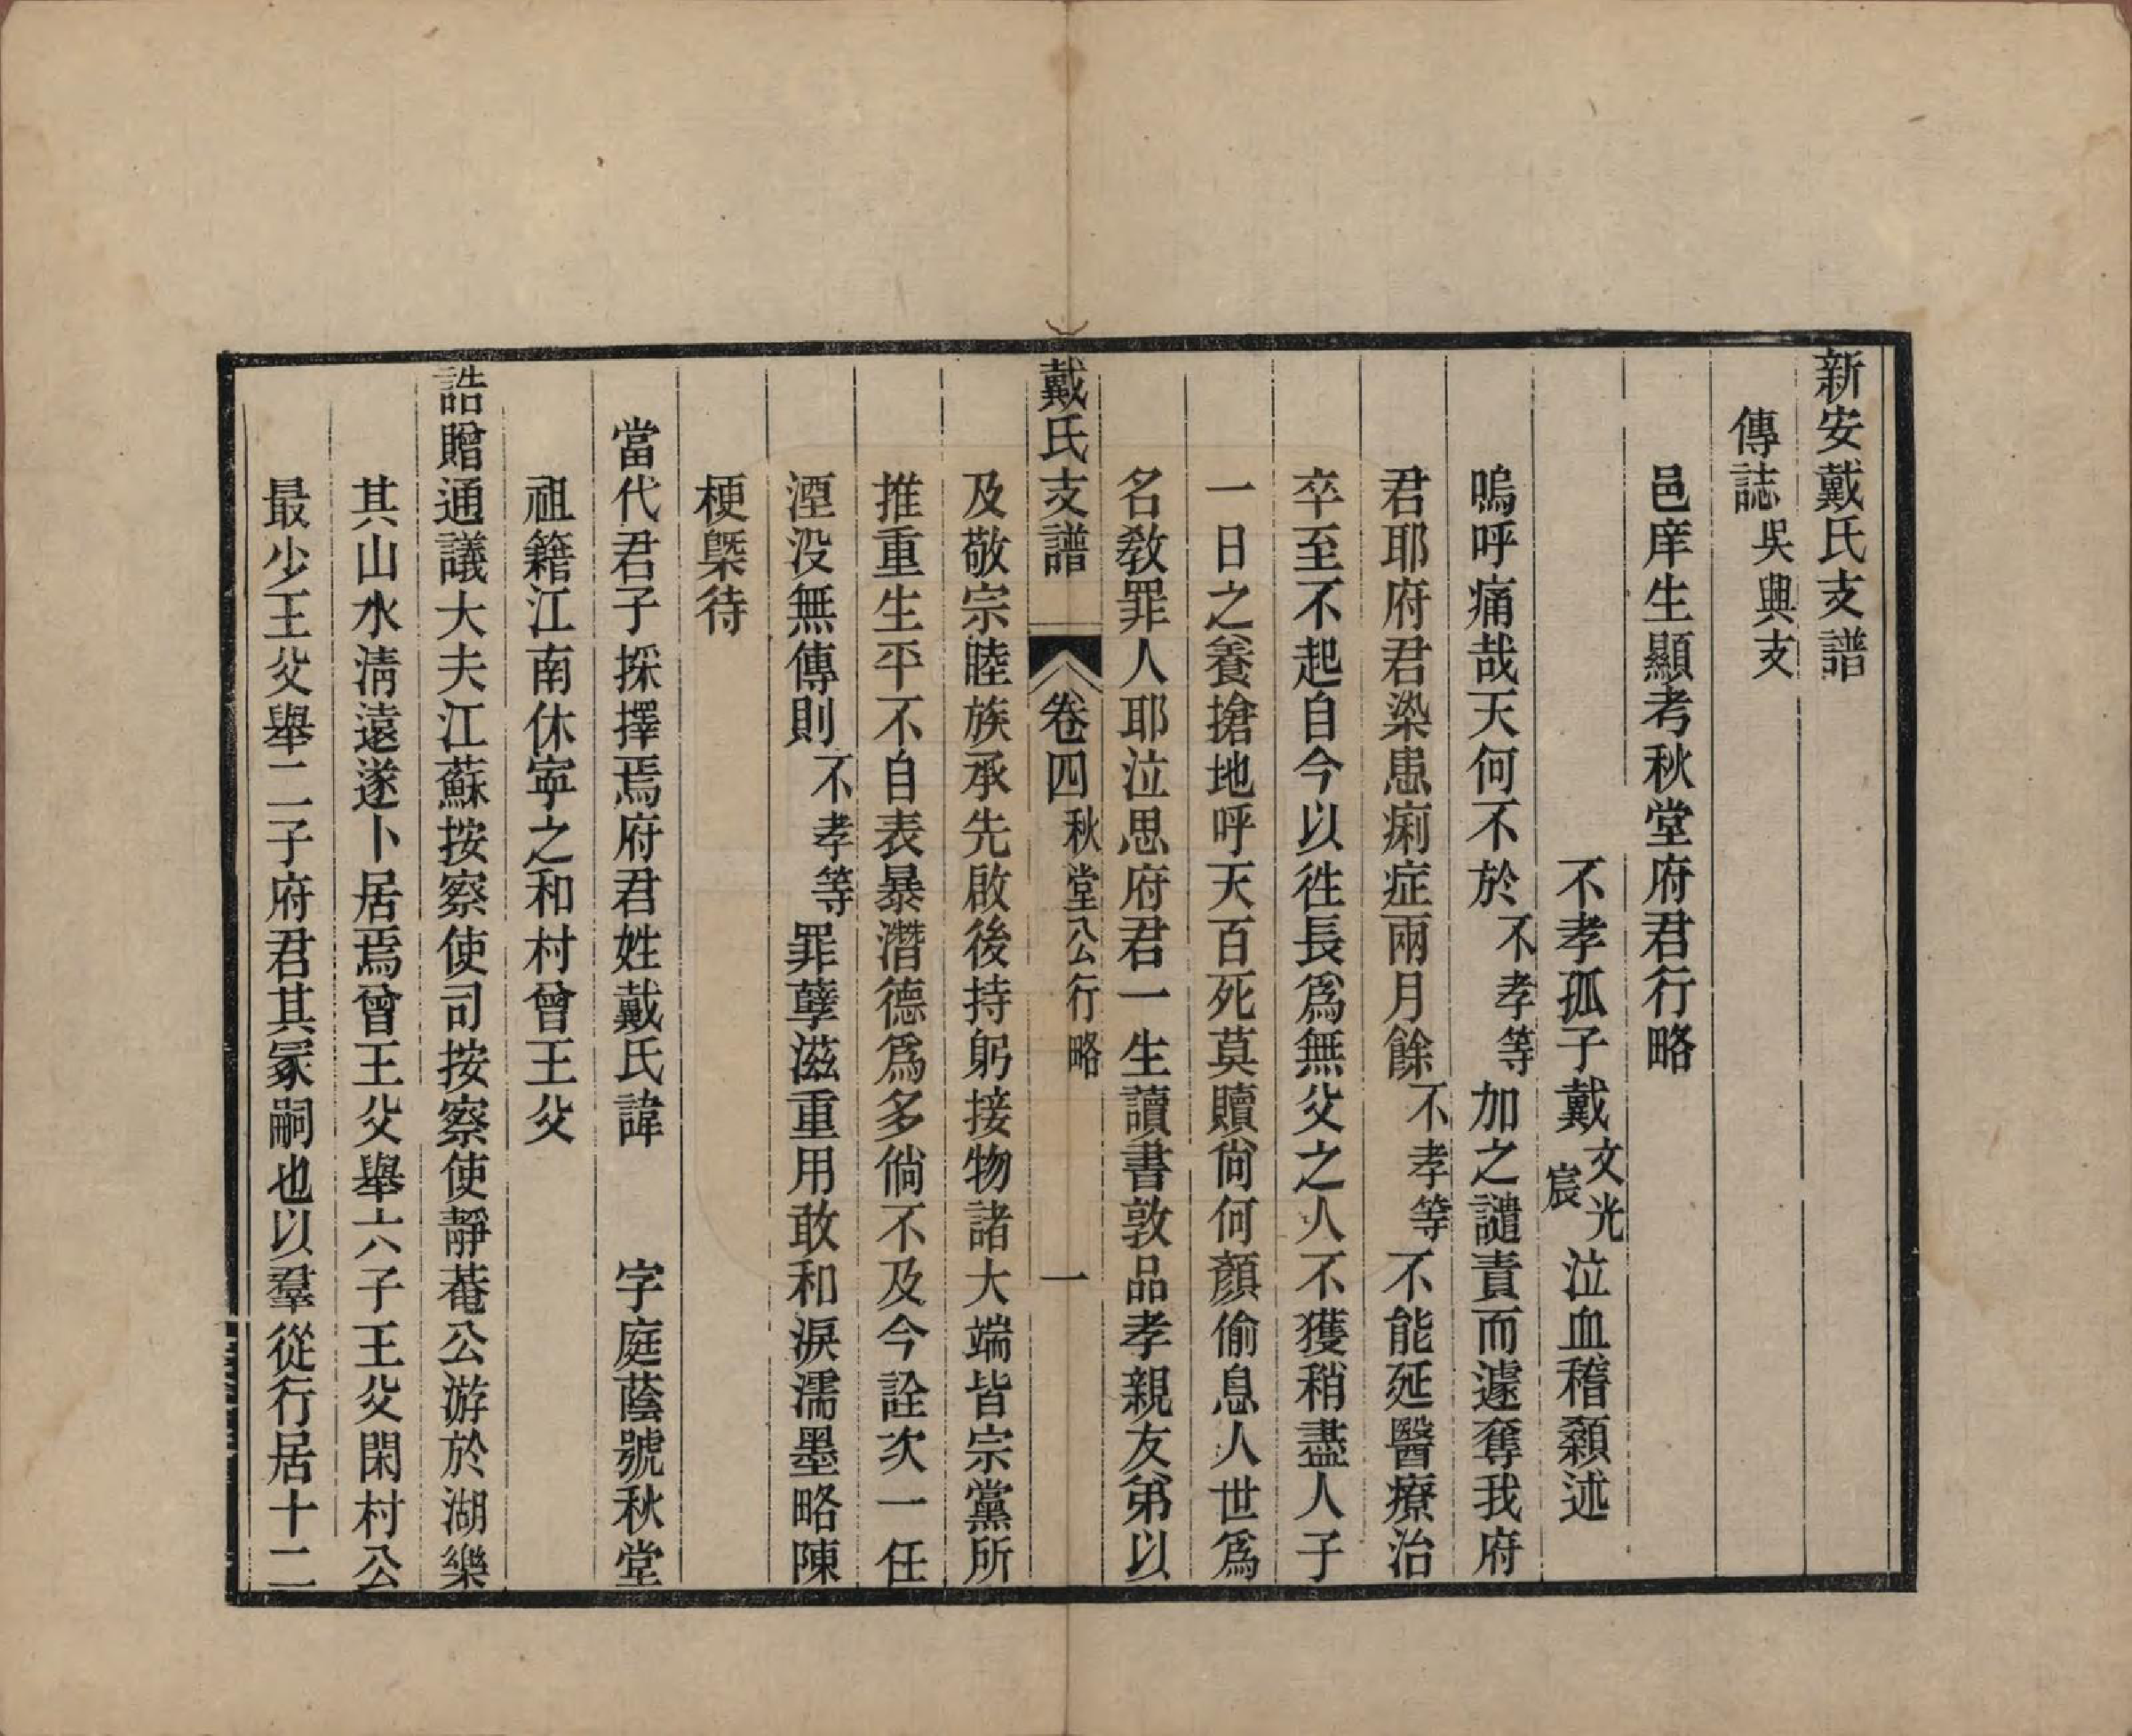 新安戴氏支譜
傳誌吳興支
邑庠生顯考秋堂府君行略
不孝孤子戴文光宸泣血稽顙述
嗚呼痛哉天何不於不孝等加之譴責而遽奪我府
君耶府君染患痢症兩月餘不孝等不能延醫療治
卒至不起自今以徃長爲無父之人不獲稍盡人子
一日之養搶地呼天百死莫贖尙何顏偷息人世爲
名敎罪人耶泣思府君一生讀書敦品孝親友弟以
戴氏支譜 卷四 秋堂公行略 一
及敬宗睦族承先啟後持躬接物諸大端皆宗黨所
推重生平不自表暴潛德爲多倘不及今詮次一任
湮没無傳則不孝等罪孽滋重用敢和淚濡墨略陳
梗槩待
當代君子採擇焉府君姓戴氏諱 字庭蔭號秋堂
祖籍江南休寧之和村曾王父
誥贈通議大夫江蘇按察使司按察使靜菴公游於湖樂
其山水淸遠遂卜居焉曾王父舉六子王父閑村公
最少王父舉二子府君其冢嗣也以羣從行居十二